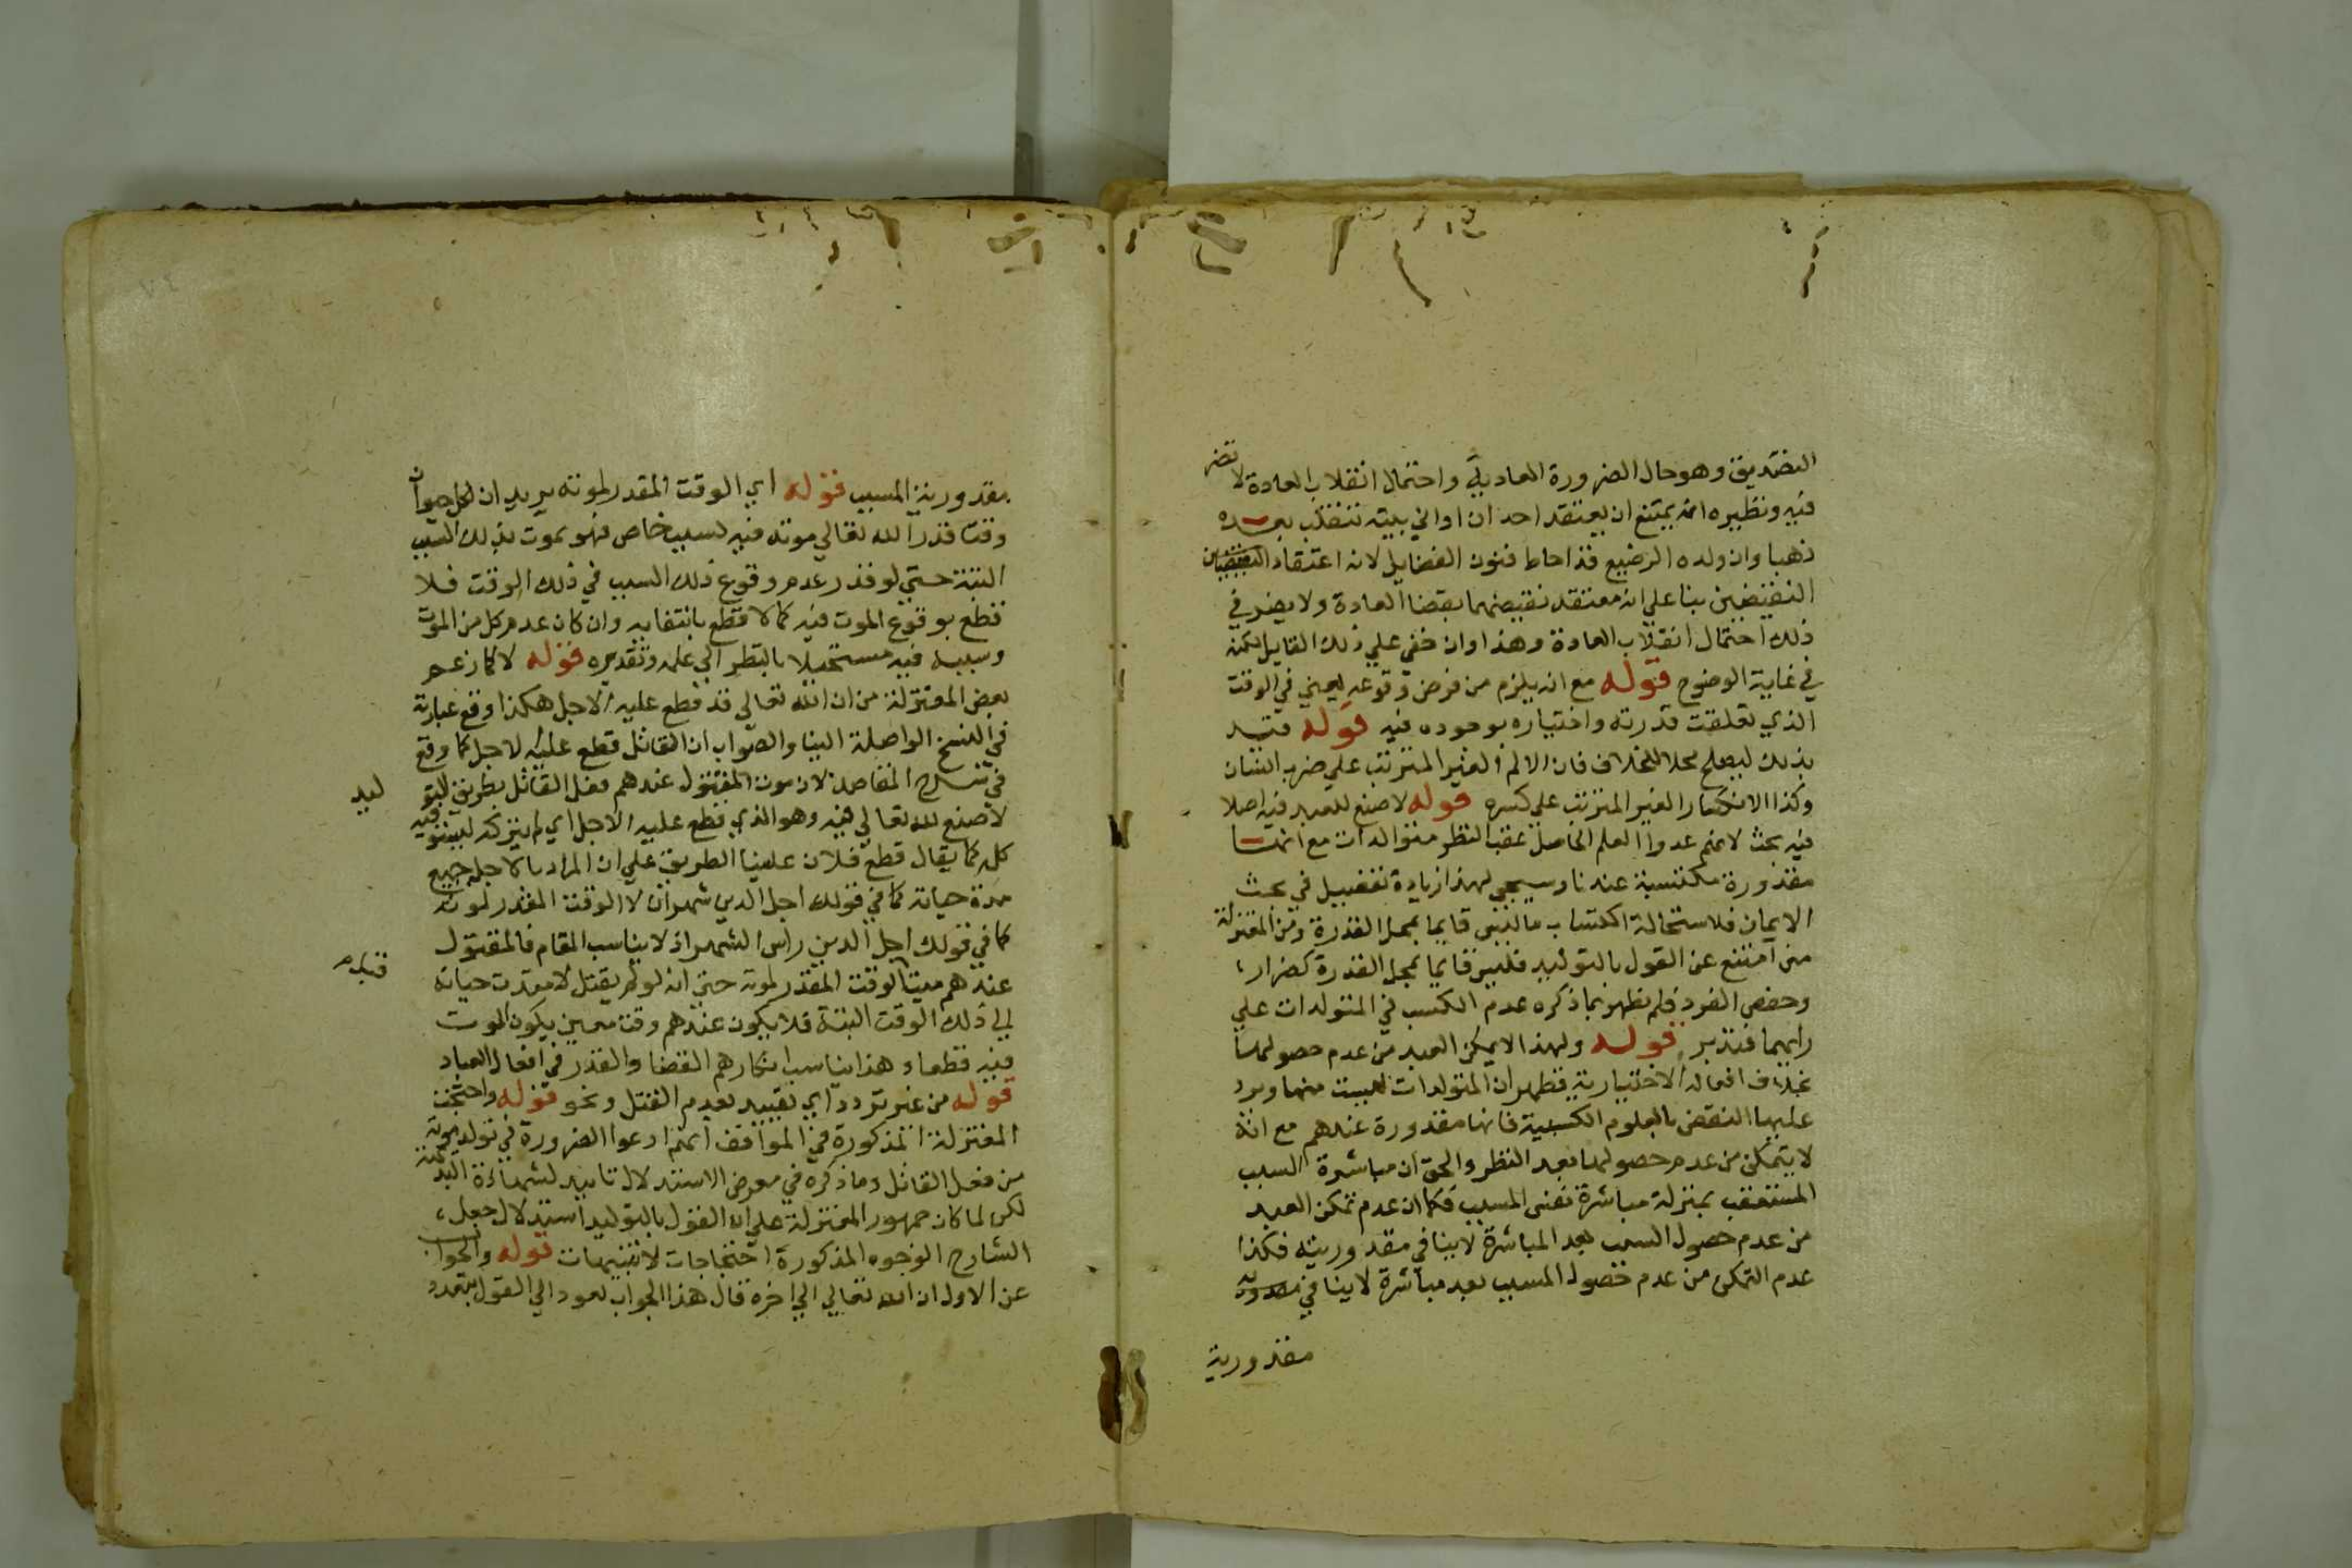 التصديق وهو حال الضرورة العادية واحتمال انقلاب العادة لا تضر
فيه ونظيره انه يمتنع ان يعتقد احد ان اواني بيته تنقلب بعده
ذهبا وان ولده الرضيع قد احاط فنون الفضايل لانه اعتقاد
النقيضين بنا علي انه معتقد نقيضهما بقضا العادة ولا يضر في
ذلك احتمال انقلاب العادة وهذا وان خفي علي ذلك القايل لكنه
في غاية الوضوح قوله مع انه يلزم من فرض وقوعه يعني في الوقت
الذي تعلقت قدرته واختياره بوجوده فيه قوله قيد
بذلك ليصلح محلا للخلاف فان الالم الغير المترتب علي ضرب انسان
وكذا الانكسار الغير المترتب علي كسره قوله لا صنع للعبد فيه اصلا
فيه بحث لانهم عدوا العلم الحاصل عقب النظر متوالدات مع انها
مقدورة مكتسبة عندنا وسيجي لهذا زيادة تفصيل في بحث
الايمان فلاستحالة اكتساب ما ليس قايما بمحل القدرة ومن المعتزلة
من امتنع عن القول بالتوليد فليس قايما بمحل القدرة كضرار
وحفص الفرد فلم يظهر بما ذكره عدم الكسب في المتولدات علي
رايهما فتدبر قوله ولهذا لا يمكن العبد من عدم حصولها
بخلاف افعاله الاختيارية فظهر ان المتولدات ليست منها ويرد
عليها النقض بالعلوم الكسبية فانها مقدورة عندهم مع انه
لا يتمكن من عدم حصولها بعد النظر والحق ان مباشرة السبب
المستعقب بمنزلة مباشرة نفس المسبب فكما ان عدم تمكن العبد
من عدم حصول السبب بعد المباشرة لا ينافي مقدوريته فكذا
عدم التمكن من عدم حصول المسبب بعد مباشرة لا ينافي
مقدورية
مقدورية المسبب قوله اي الوقت المقدر لموته يريد ان لكل حيوان
وقت قدر الله تعالي موته فيه بسبب خاص فهو يموت بذلك السبب
البتة حتي لو قدر عدم وقوع ذلك السبب في ذلك الوقت فلا
قطع بوقوع الموت فيه كما لا قطع بانتفايه وان كان عدم كل من الموت
وسببه فيه مستحيلا بالنظر الي علمه وتقديره قوله لا كما زعم
بعض المعتزلة من ان الله تعالي قد قطع عليه الاجل هكذا وقع عبارته
في النسخ الواصلة الينا والصواب ان القاتل قطع عليه الاجل كما وقع
في شرح المقاصد لان موت المقتول عندهم فعل القاتل بطريق التو
ليد
لا صنع لله تعالي فيه وهو الذي قطع عليه الاجل اي لم يتركه ليستوفيه
كله كما يقال قطع فلان علينا الطريق علي ان المراد بالاجل جميع
مدة حياته كما في قولك اجل الدين شهران لا الوقت المقدر لموته
كما في قولك اجل الدين راس الشهر اذ لا يناسب المقام فالمقتول
عندهم ميت الوقت المقدر لموته حتي انه لو لم يقتل لامتدت حياته
قبل
الي ذلك الوقت البتة فلا يكون عندهم وقت معين يكون الموت
فيه قطعا وهذا يناسب انكارهم القضا والقدر في افعال العباد
قوله من غير تردد اي تقييد بعدم القتل ونحو قوله واحتجت
المعتزلة المذكورة في المواقف انهم ادعوا الضرورة في تولد موته
من فعل القاتل وما ذكره في معرض الاستدلال تاييد لشهادة البديهة
لكن لما كان جمهور المعتزلة علي ان القول بالتوليد استدلال جعل
الشارح الوجوه المذكورة احتجاجات لا تنبيهات قوله والجواب
عن الاول ان الله تعالي الي اخره قال هذا الجواب يعود الي القول بتعدد